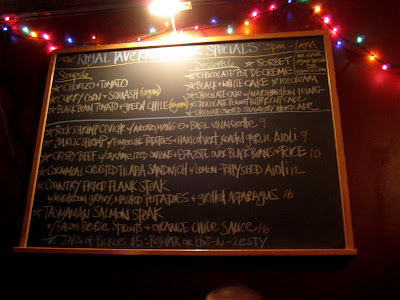 ROYAL TAVERN SPECIALS 5PM - 1AM
SOUPS
CHORIZO + TOMATO
CURRY CORN + SQUASH (vegan)
BLACK BEAN TOMATO + GREEN CHILE (vegan)
DESSERTS
SORBET
CHOCOLATE POT DE CREME
BLACK + WHITE CAKE ICE CREAM
CHOCOLATE CAKE w/ MARSHMALLOW ICING
CHOCOLATE PEANUT BUTTER CUPCAKE
CHOCOLATE COVERED STRAWBERRY SHORTCAKE
ROCK SHRIMP CEVICHE w/ AVOCADO, MANGO + BASIL VINAIGRETTE 9
GARLIC SHRIMP w/ FINGERLING POTATOES + HARICOT VERT, ROASTED GARLIC AIOLI 9
CRISPY BEEF w/ CARAMELIZED ONIONS + EPAZOTE OAX BLACK BEANS + RICE 10
CORNMEAL CRUSTED TILAPIA SANDWICH w/ LEMON-POPPYSEED AIOLI 12
COUNTRY FRIED FLANK STEAK
w/ MUSHROOM GRAVY, MASHED POTATOES + grilled ASPARAGUS 16
TASMANIAN SALMON STEAK
w/ BACON BRUSSEL SPROUTS + ORANGE CHILE SAUCE 16
JARS OF PICKLES $5 - REGULAR OR HOT-N-ZESTY